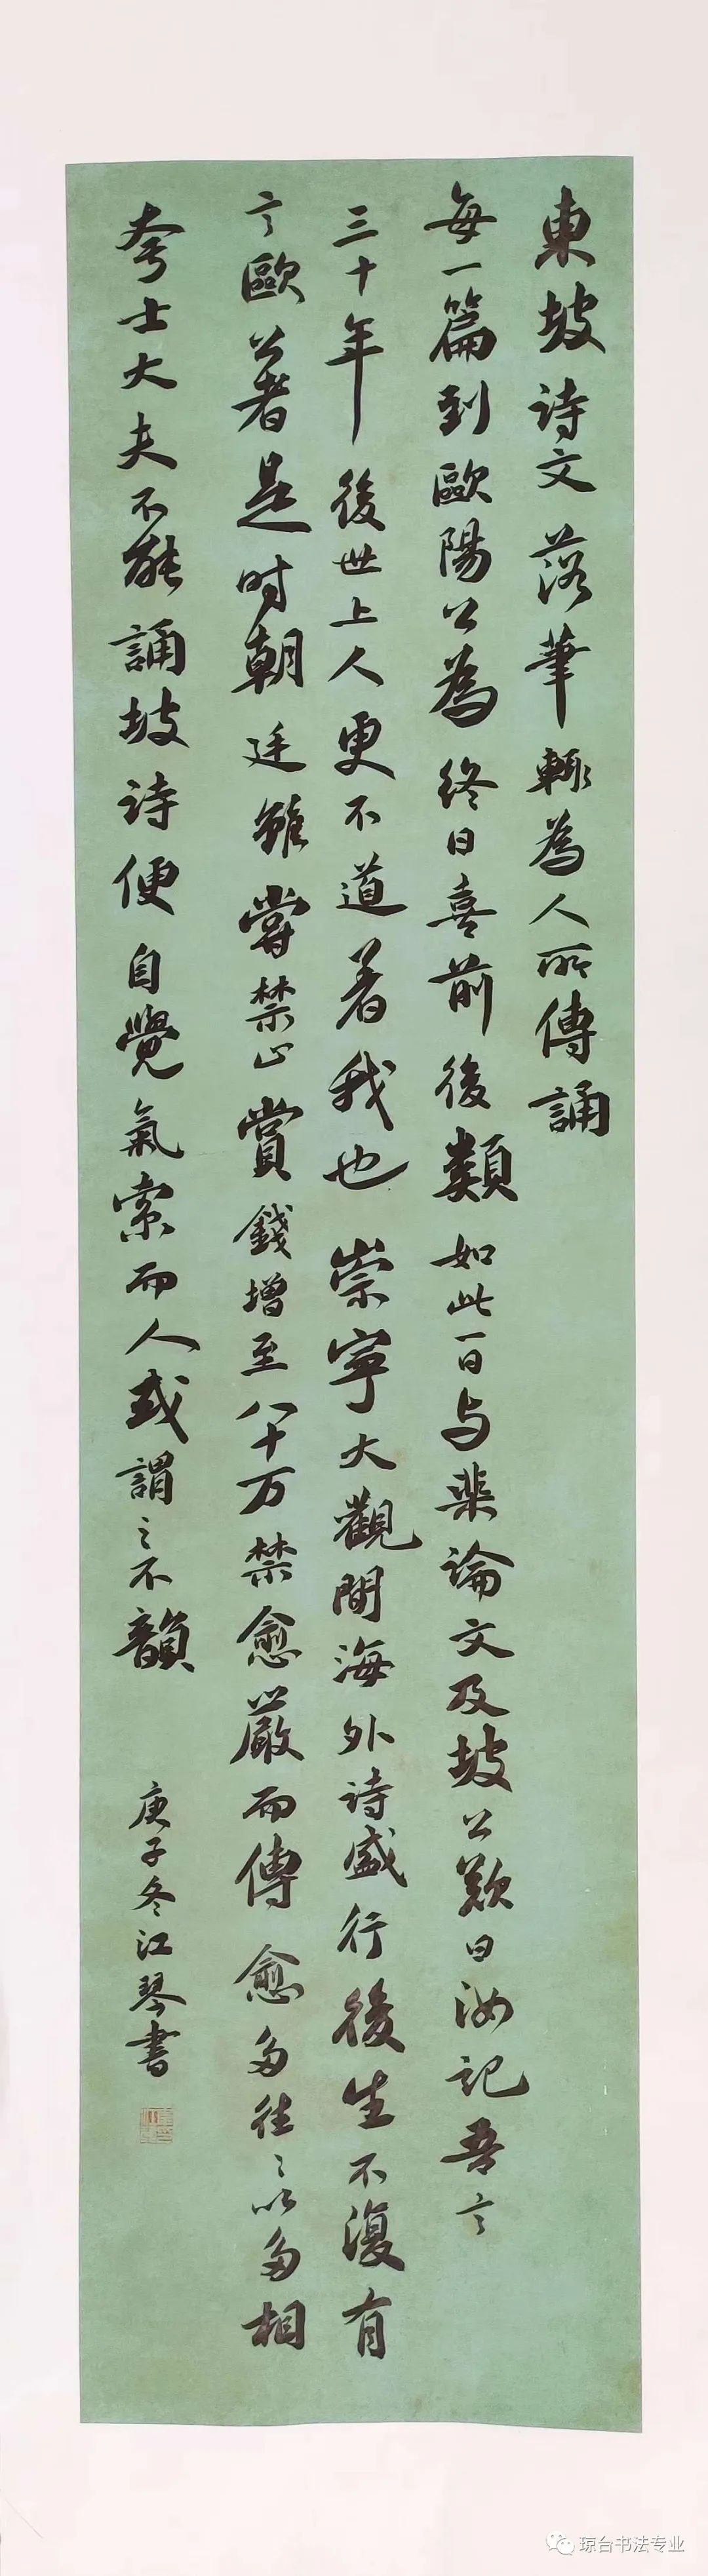 東坡詩文落筆輒為人所傳誦
每一篇到歐陽公為終日喜前後類如此一日与棐論文及坡公歎曰汝記吾言
三十年後世上人更不道着我也崇寧大觀間海外詩盛行後生不復有
言歐公著是時朝廷雖嘗禁止賞錢增至八十万禁愈嚴而傳愈多往〻以多相
夸士大夫不能誦坡詩便自覺氣索而人或謂之不韻
庚子冬江琴書
琼台书法专业